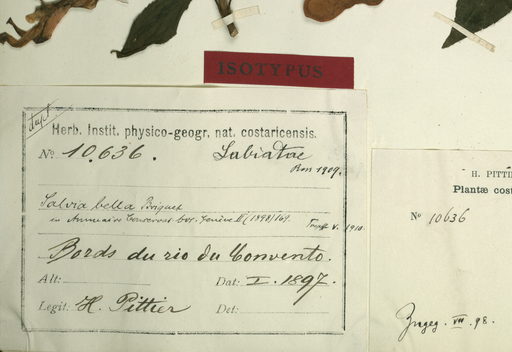 ISOTYPUS
dupl.
Herb. Instit. physico-geogr. nat. costaricensis.
No 10.636. Labiatae
Salvia bella Briquet
in Annuaire Conservat. bot. Genève II (1898) 169.
1910.
Bords du rio du Convento.
Alt: Dat: I. 1897.
Legit. H. Pittier Det:
H. PITTI
Plantæ cost
No 10636
VII. 98.